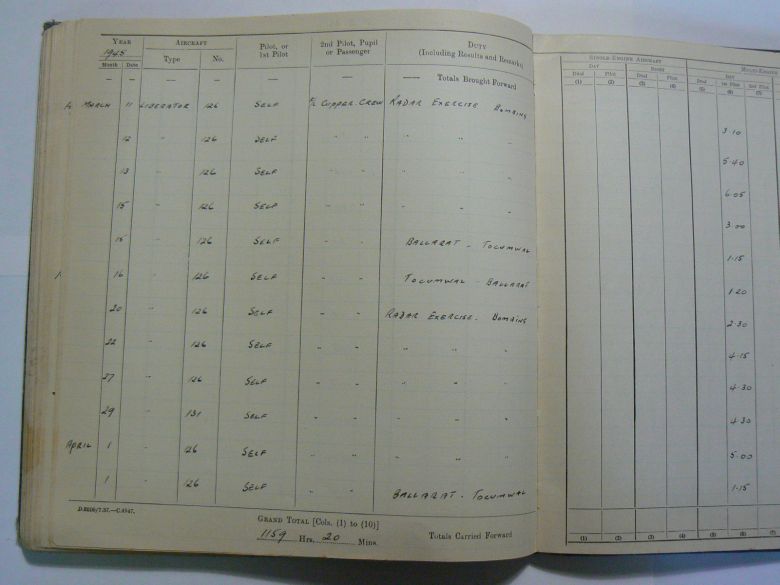 YEAR AIRCRAFT Pilot, or 1st Pilot 2nd Pilot, Pupil or Passenger DUTY (Including Results and Remarks) SINGLE-ENGINE AIRCRAFT
1945 DAY NIGHT DAY
Month Date Type No. Dual Pilot Dual Pilot Dual 1st Pilot 2nd Pilot
(1) (2) (3) (4) (5) (6) (7)
— — — — — — — Totals Brought Forward
MARCH 11 LIBERATOR 126 SELF CREW RADAR EXERCISE BOMBING 3·10
12 " 126 SELF " " " " " 5·40
13 " 126 SELF " " " " " 6·05
15 " 126 SELF " " " " " 3·00
15 " 126 SELF " " BALLARAT - TOCUMWAL 1·15
16 " 126 SELF " " TOCUMWAL - BALLARAT 1·20
20 " 126 SELF " " RADAR EXERCISE - BOMBING 2·30
22 " 126 SELF " " " " " 4·15
27 " 126 SELF " " " " " 4·30
29 " 131 SELF " " " " " 4·30
APRIL 1 " 126 SELF " " " " " 5·00
1 " 126 SELF " " BALLARAT - TOCUMWAL 1·15
GRAND TOTAL [Cols. (1) to (10)]
1159 Hrs. 20 Mins. Totals Carried Forward
(1) (2) (3) (4) (5) (6) (7)